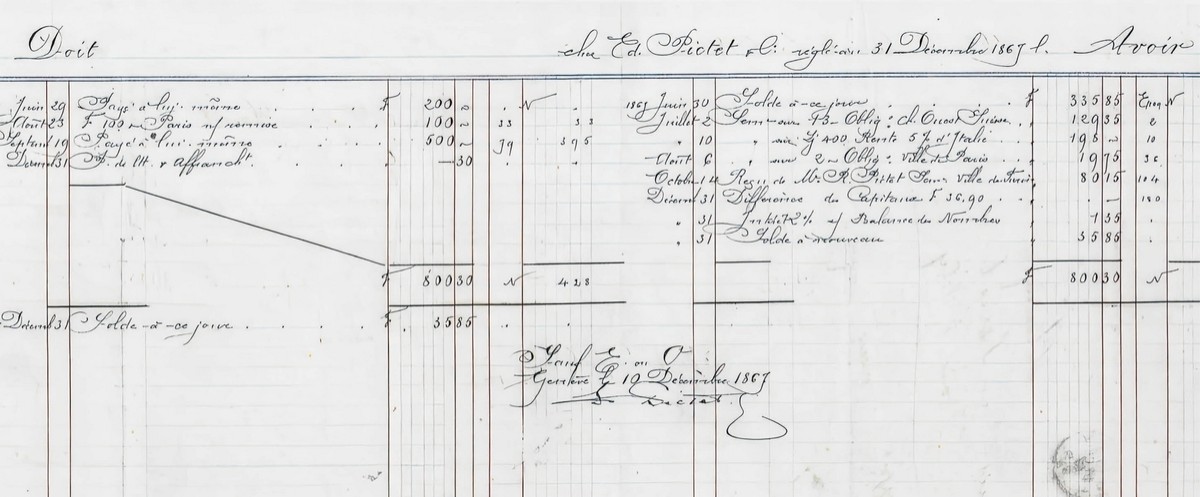 Doit
chez Ed. Pictet & Cie réglé au 31 Décembre 1867. Avoir
Juin 29 Payé à lui même F 200 " . N
Août 23 F 100 " Paris n/ remise 100 " 33 33
Septem 19 Payé à lui même 500 " 79 395
Décem 31 P. de ltt. & Affrancht. — 30 . "
F 800 30 N 428
Décem 31 Solde à ce jour F. 35 85
1867 Juin 30 Solde à ce jour F 335 85 N
Juillet 2 Sem. sur 13 Oblig. ch. Ouest Suisse 129 35 2
" " sur F 400 Rente 5 % d'Italie 195 " 10
Août 6 " sur 2 Oblig. Ville de Paris 19 75 36
Octobre 14 Reçu de Mr. R. Pictet Sem. Ville de 80 15 104
Décem 31 Différence des Capitaux F 36.90 . — 180
" 31 Intérêt 2 % s/ Balance des Nombres 1 35
" 31 Solde à nouveau 35 85
F 800 30 N
Sauf E. ou O
Genève le 19 Décembre 1867
Pictet